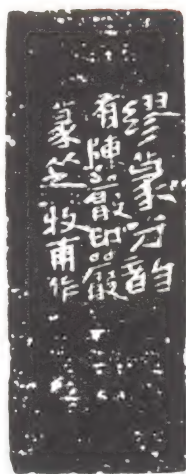 繆篆分韵
有陳嚴印嚴
篆芝牧甫作